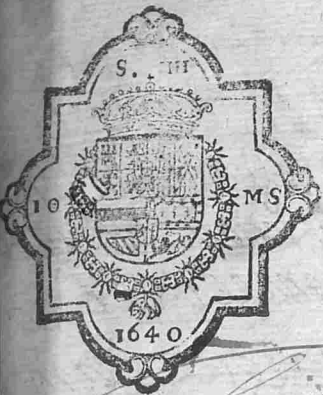 S. III
10 MS
1640